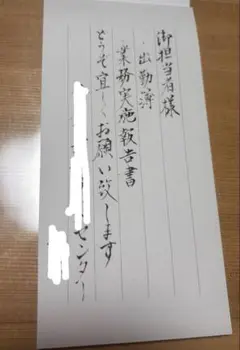 御担当者様
出勤簿
業務実施報告書
どうぞ宜しくお願い致します
センター